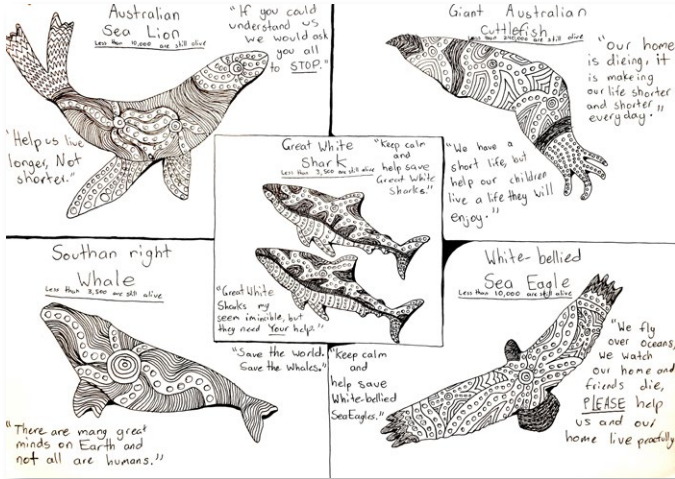 Australian
Sea Lion
Less than 10,000 are still alive
"If you could
understand us
we would ask
you all
to STOP."
"Help us live
longer, Not
shorter."
Giant Australian
Cuttlefish
Less than 240,000 are still alive
"Our home
is dieing, it
is makeing
our life shorter
and shorter
everyday."
"We have a
short life, but
help our children
live a life they will
enjoy."
Great White
Shark
Less than 3,500 are still alive
"Keep calm
and
help save
Great White
Sharks."
"Great White
Sharks my
seem iminible, but
they need Your help."
Southan right
Whale
Less than 3,500 are still alive
"Save the world.
Save the whales."
"There are many great
minds on Earth and
not all are humans."
White-bellied
Sea Eagle
Less than 10,000 are still alive
"Keep calm
and
help save
White-bellied
Sea Eagles."
"We fly
over oceans,
we watch
our home and
friends die,
PLEASE help
us and our
home live